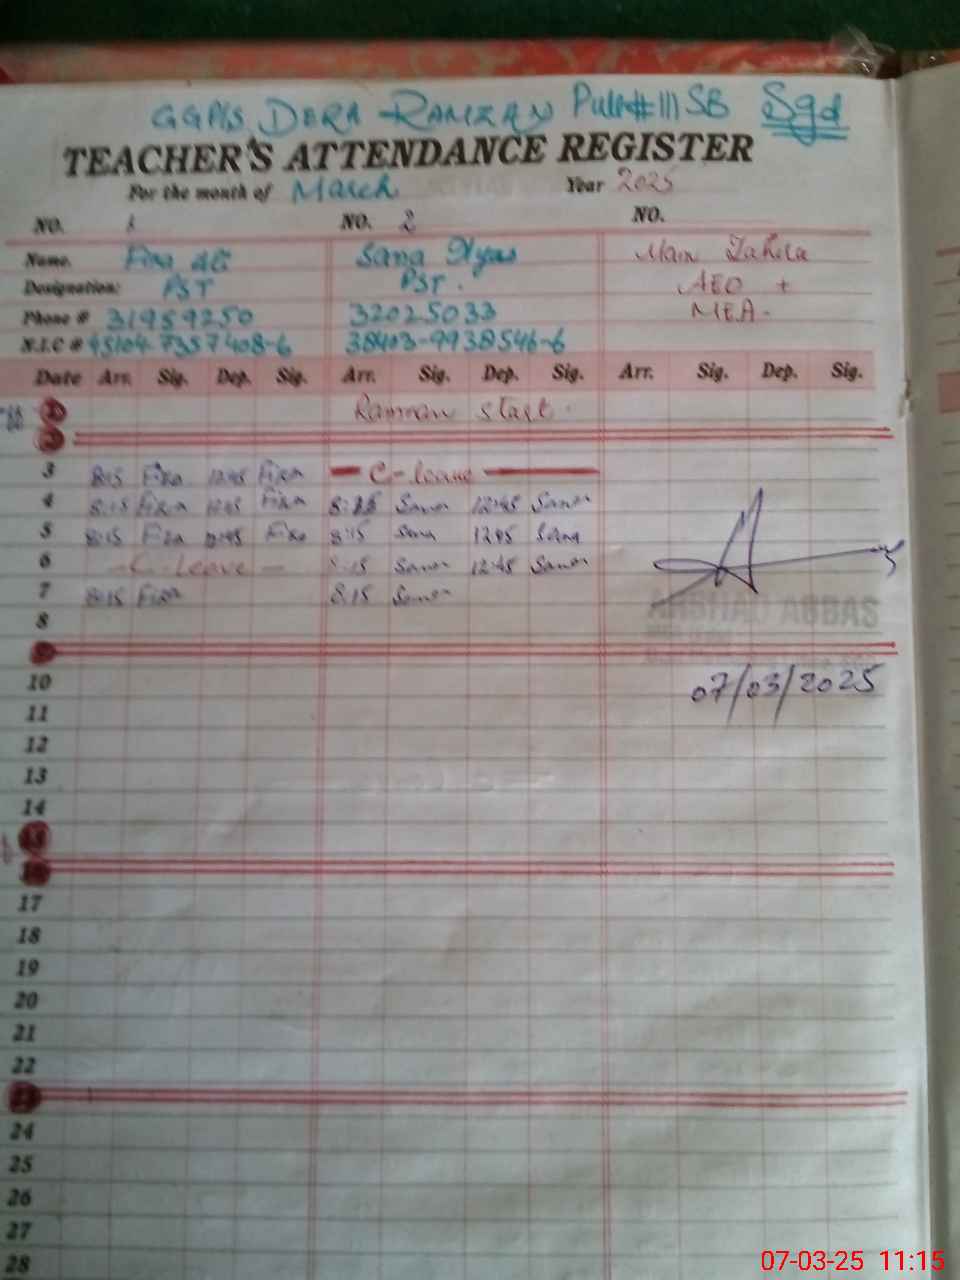 GGPS DERA RAMZAN Pull # 111 SB Sgd
TEACHER'S ATTENDANCE REGISTER
For the month of March Year 2025
NO. 1 NO. 2 NO.
Name. Fiza Ali Sana Ilyas Mam Zahida
Designation: PST PST. AEO +
Phone # 31959250 32025033 MEA.
N.I.C # 45104-7357408-6 38403-9938546-6
Date Arr. Sig. Dep. Sig. Arr. Sig. Dep. Sig. Arr. Sig. Dep. Sig.
1 Ramzan start.
2
3 8:15 Fiza 12:45 Fiza C-leave
4 8:15 Fiza 12:45 Fiza 8:15 Sana 12:45 Sana
5 8:15 Fiza 12:45 Fiza 8:15 Sana 12:45 Sana
6 C-leave 8:15 Sana 12:45 Sana
7 8:15 Fiza 8:15 Sana
ARSHAD ABBAS
8
9
10 07/03/2025
11
12
13
14
15
16
17
18
19
20
21
22
23
24
25
26
27
28
07-03-25 11:15